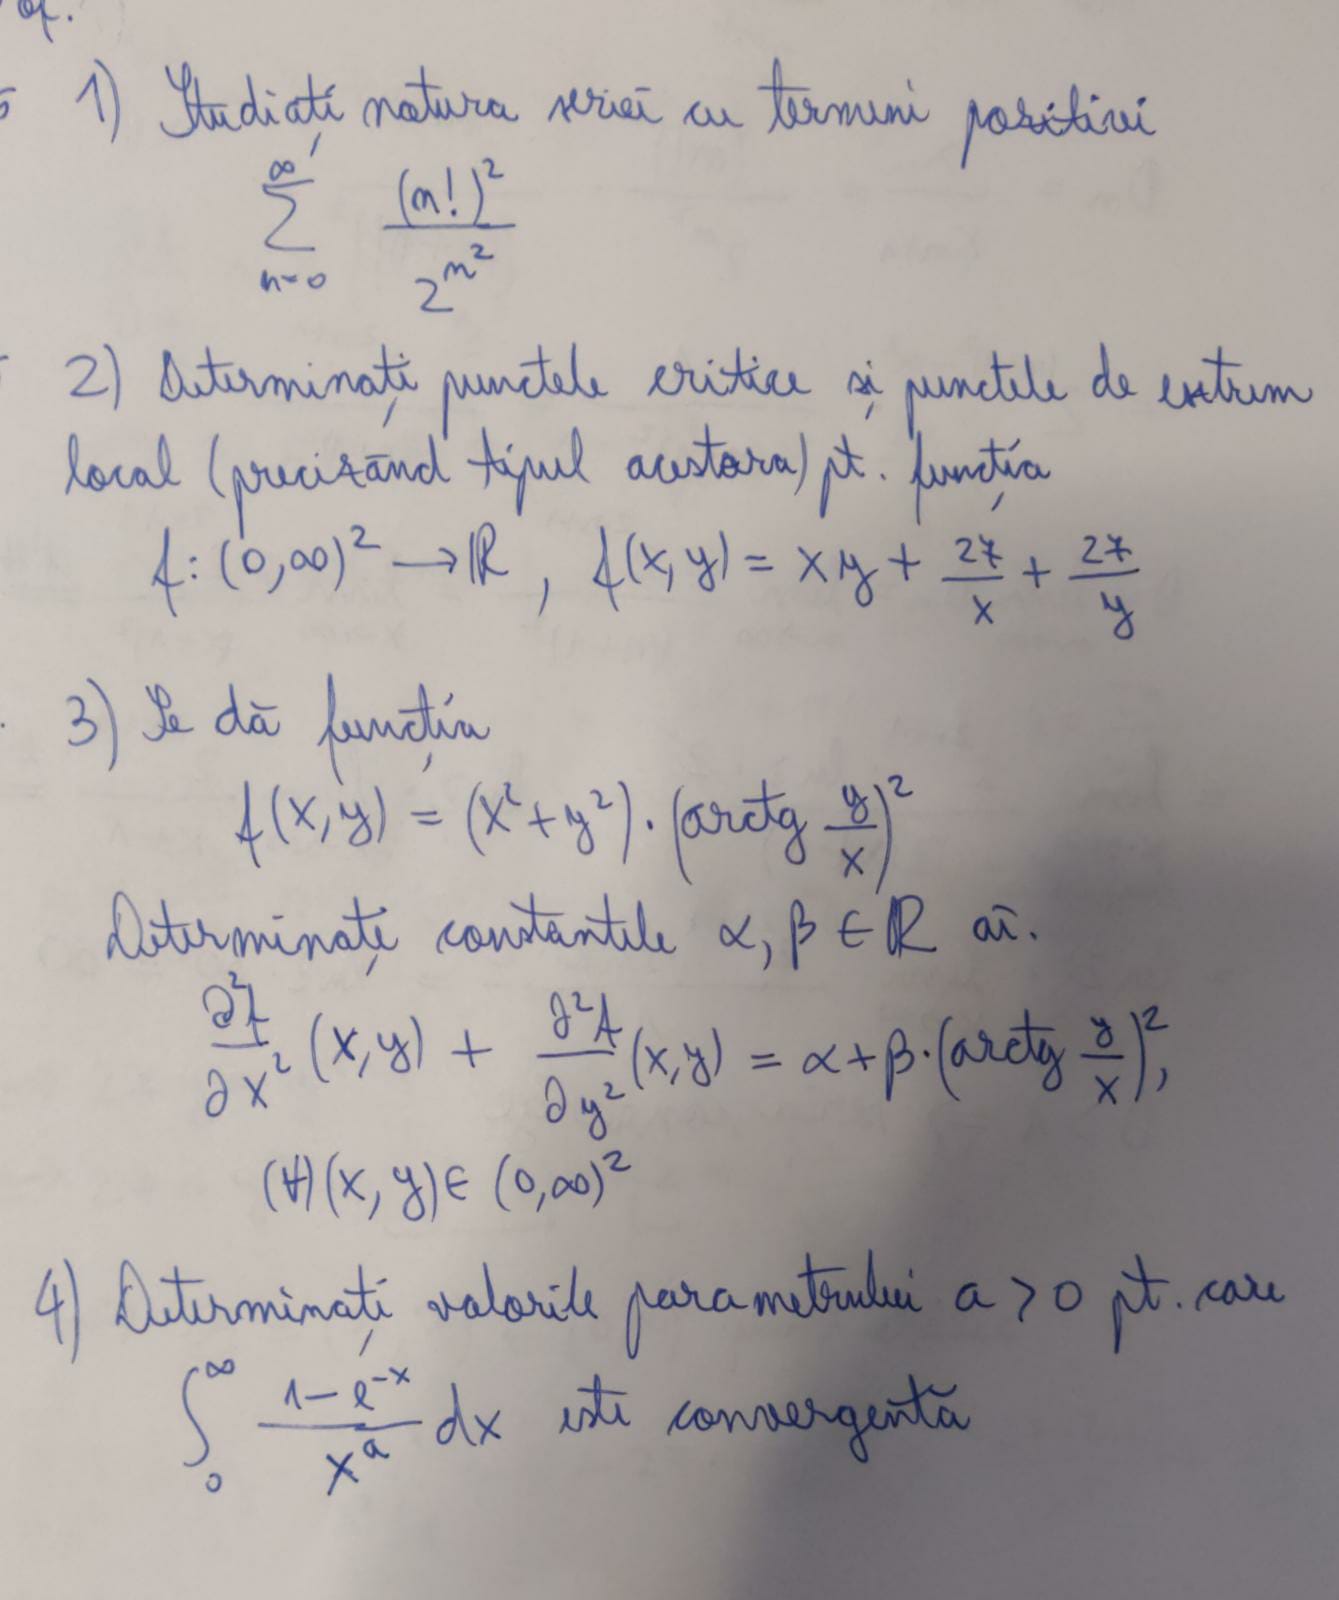 1) Studiați natura seriei cu termeni pozitivi
∞
∑ (n!)²/2^(n²)
n=0
2) Determinați punctele critice și punctele de extrem
local (precizând tipul acestora) pt. funcția
f: (0,∞)² → ℝ, f(x,y) = xy + 27/x + 27/y
3) Se dă funcția
f(x,y) = (x²+y²)·(arctg y/x)²
Determinați constantele α, β ∈ ℝ aî.
∂²f/∂x² (x,y) + ∂²f/∂y² (x,y) = α+β·(arctg y/x)²,
(∀)(x,y)∈ (0,∞)²
4) Determinați valorile parametrului a > 0 pt. care
∫₀^∞ (1-e^(-x))/x^a dx este convergentă